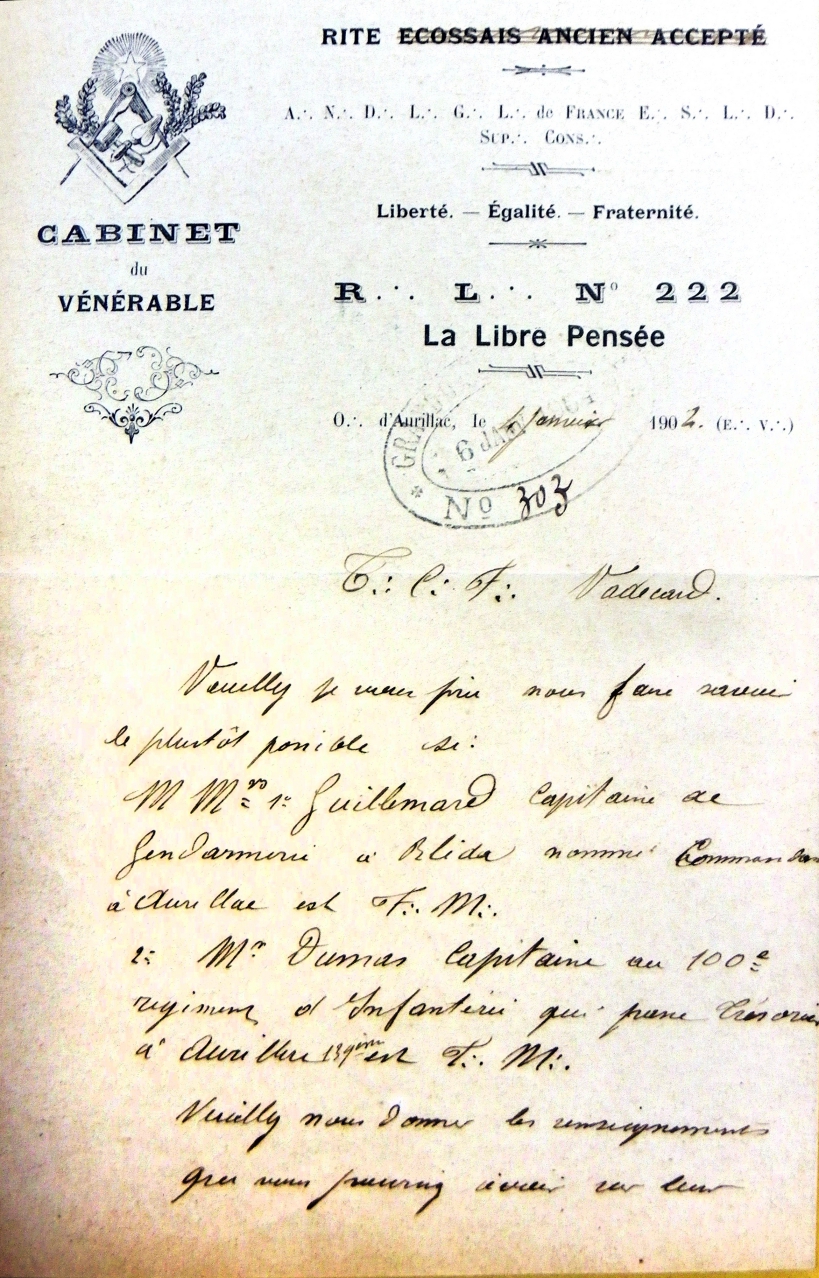 RITE ECOSSAIS ANCIEN ACCEPTÉ
A∴ N∴ D∴ L∴ G∴ L∴ de FRANCE E∴ S∴ L∴ D∴
SUP∴ CONS∴
Liberté. — Égalité. — Fraternité.
CABINET
du
VÉNÉRABLE
R∴ L∴ N° 222
La Libre Pensée
O∴ d'Aurillac, le 4 Janvier 1902. (E∴ V∴)
6 JANV
No 303
T∴ C∴ F∴ Vadecard.
Veuillez je vous prie nous faire savoir
le plustôt possible si:
M Mrs 1° Guillemard Capitaine de
Gendarmerie à Blida nommé Commandan
à Aurillac est F∴ M∴
2° Mr Dumas Capitaine au 100e
régiment d'Infanterie qui passe Trésorier
à Aurillac 139ème est F∴ M∴
Veuillez nous donner les renseignements
que vous pourriez avoir sur leur